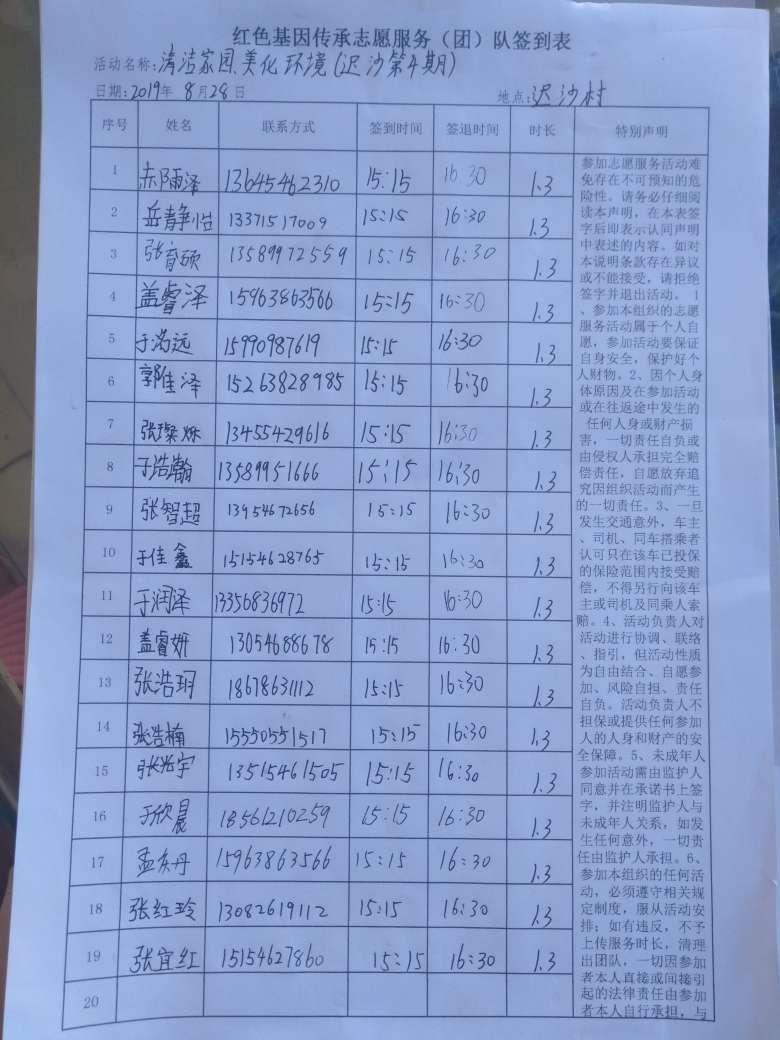 红色基因传承志愿服务（团）队签到表
活动名称：清洁家园美化环境（迟沙第4期）
日期：2019年8月28日 地点：迟沙村
序号 姓名 联系方式 签到时间 签退时间 时长 特别声明
1 赤雨泽 13645462310 15:15 16:30 1.3
2 岳静怡 13371517009 15:15 16:30 1.3
3 张育硕 13589972559 15:15 16:30 1.3
4 盖睿泽 15963863566 15:15 16:30 1.3
5 于浩远 15990987619 15:15 16:30 1.3
6 郭佳泽 15263828985 15:15 16:30 1.3
7 张璨烁 13455429616 15:15 16:30 1.3
8 于浩瀚 13589951666 15:15 16:30 1.3
9 张智超 13954672656 15:15 16:30 1.3
10 于佳鑫 15154628765 15:15 16:30 1.3
11 于润泽 13356836972 15:15 16:30 1.3
12 盖睿妍 13054688678 15:15 16:30 1.3
13 张浩玥 18678631112 15:15 16:30 1.3
14 张浩楠 15550551517 15:15 16:30 1.3
15 张 宇 13515461505 15:15 16:30 1.3
16 于欣晨 18561210259 15:15 16:30 1.3
17 孟东丹 15963863566 15:15 16:30 1.3
18 张红玲 13082619112 15:15 16:30 1.3
19 张宜红 15154627860 15:15 16:30 1.3
20
参加志愿服务活动难
免存在不可预知的危
险性。请务必仔细阅
读本声明，在本表签
字后即表示认同声明
中表述的内容。如对
本说明条款存在异议
或不能接受，请拒绝
签字并退出活动。 1
、参加本组织的志愿
服务活动属于个人自
愿，参加活动要保证
自身安全，保护好个
人财物。2、因个人身
体原因及在参加活动
或在往返途中发生的
任何人身或财产损
害，一切责任自负或
由侵权人承担完全赔
偿责任，自愿放弃追
究因组织活动而产生
的一切责任。3、一旦
发生交通意外，车主
、司机、同车搭乘者
认可只在该车已投保
的保险范围内接受赔
偿，不得另行向该车
主或司机及同乘人索
赔。4、活动负责人对
活动进行协调、联络
、指引，但活动性质
为自由结合、自愿参
加、风险自担、责任
自负。活动负责人不
担保或提供任何参加
人的人身和财产的安
全保障。5、未成年人
参加活动需由监护人
同意并在承诺书上签
字，并注明监护人与
未成年人关系，如发
生任何意外，一切责
任由监护人承担。6、
参加本组织的任何活
动，必须遵守相关规
定制度，服从活动安
排；如有违反，不予
上传服务时长，清理
出团队，一切因参加
者本人直接或间接引
起的法律责任由参加
者本人自行承担，与